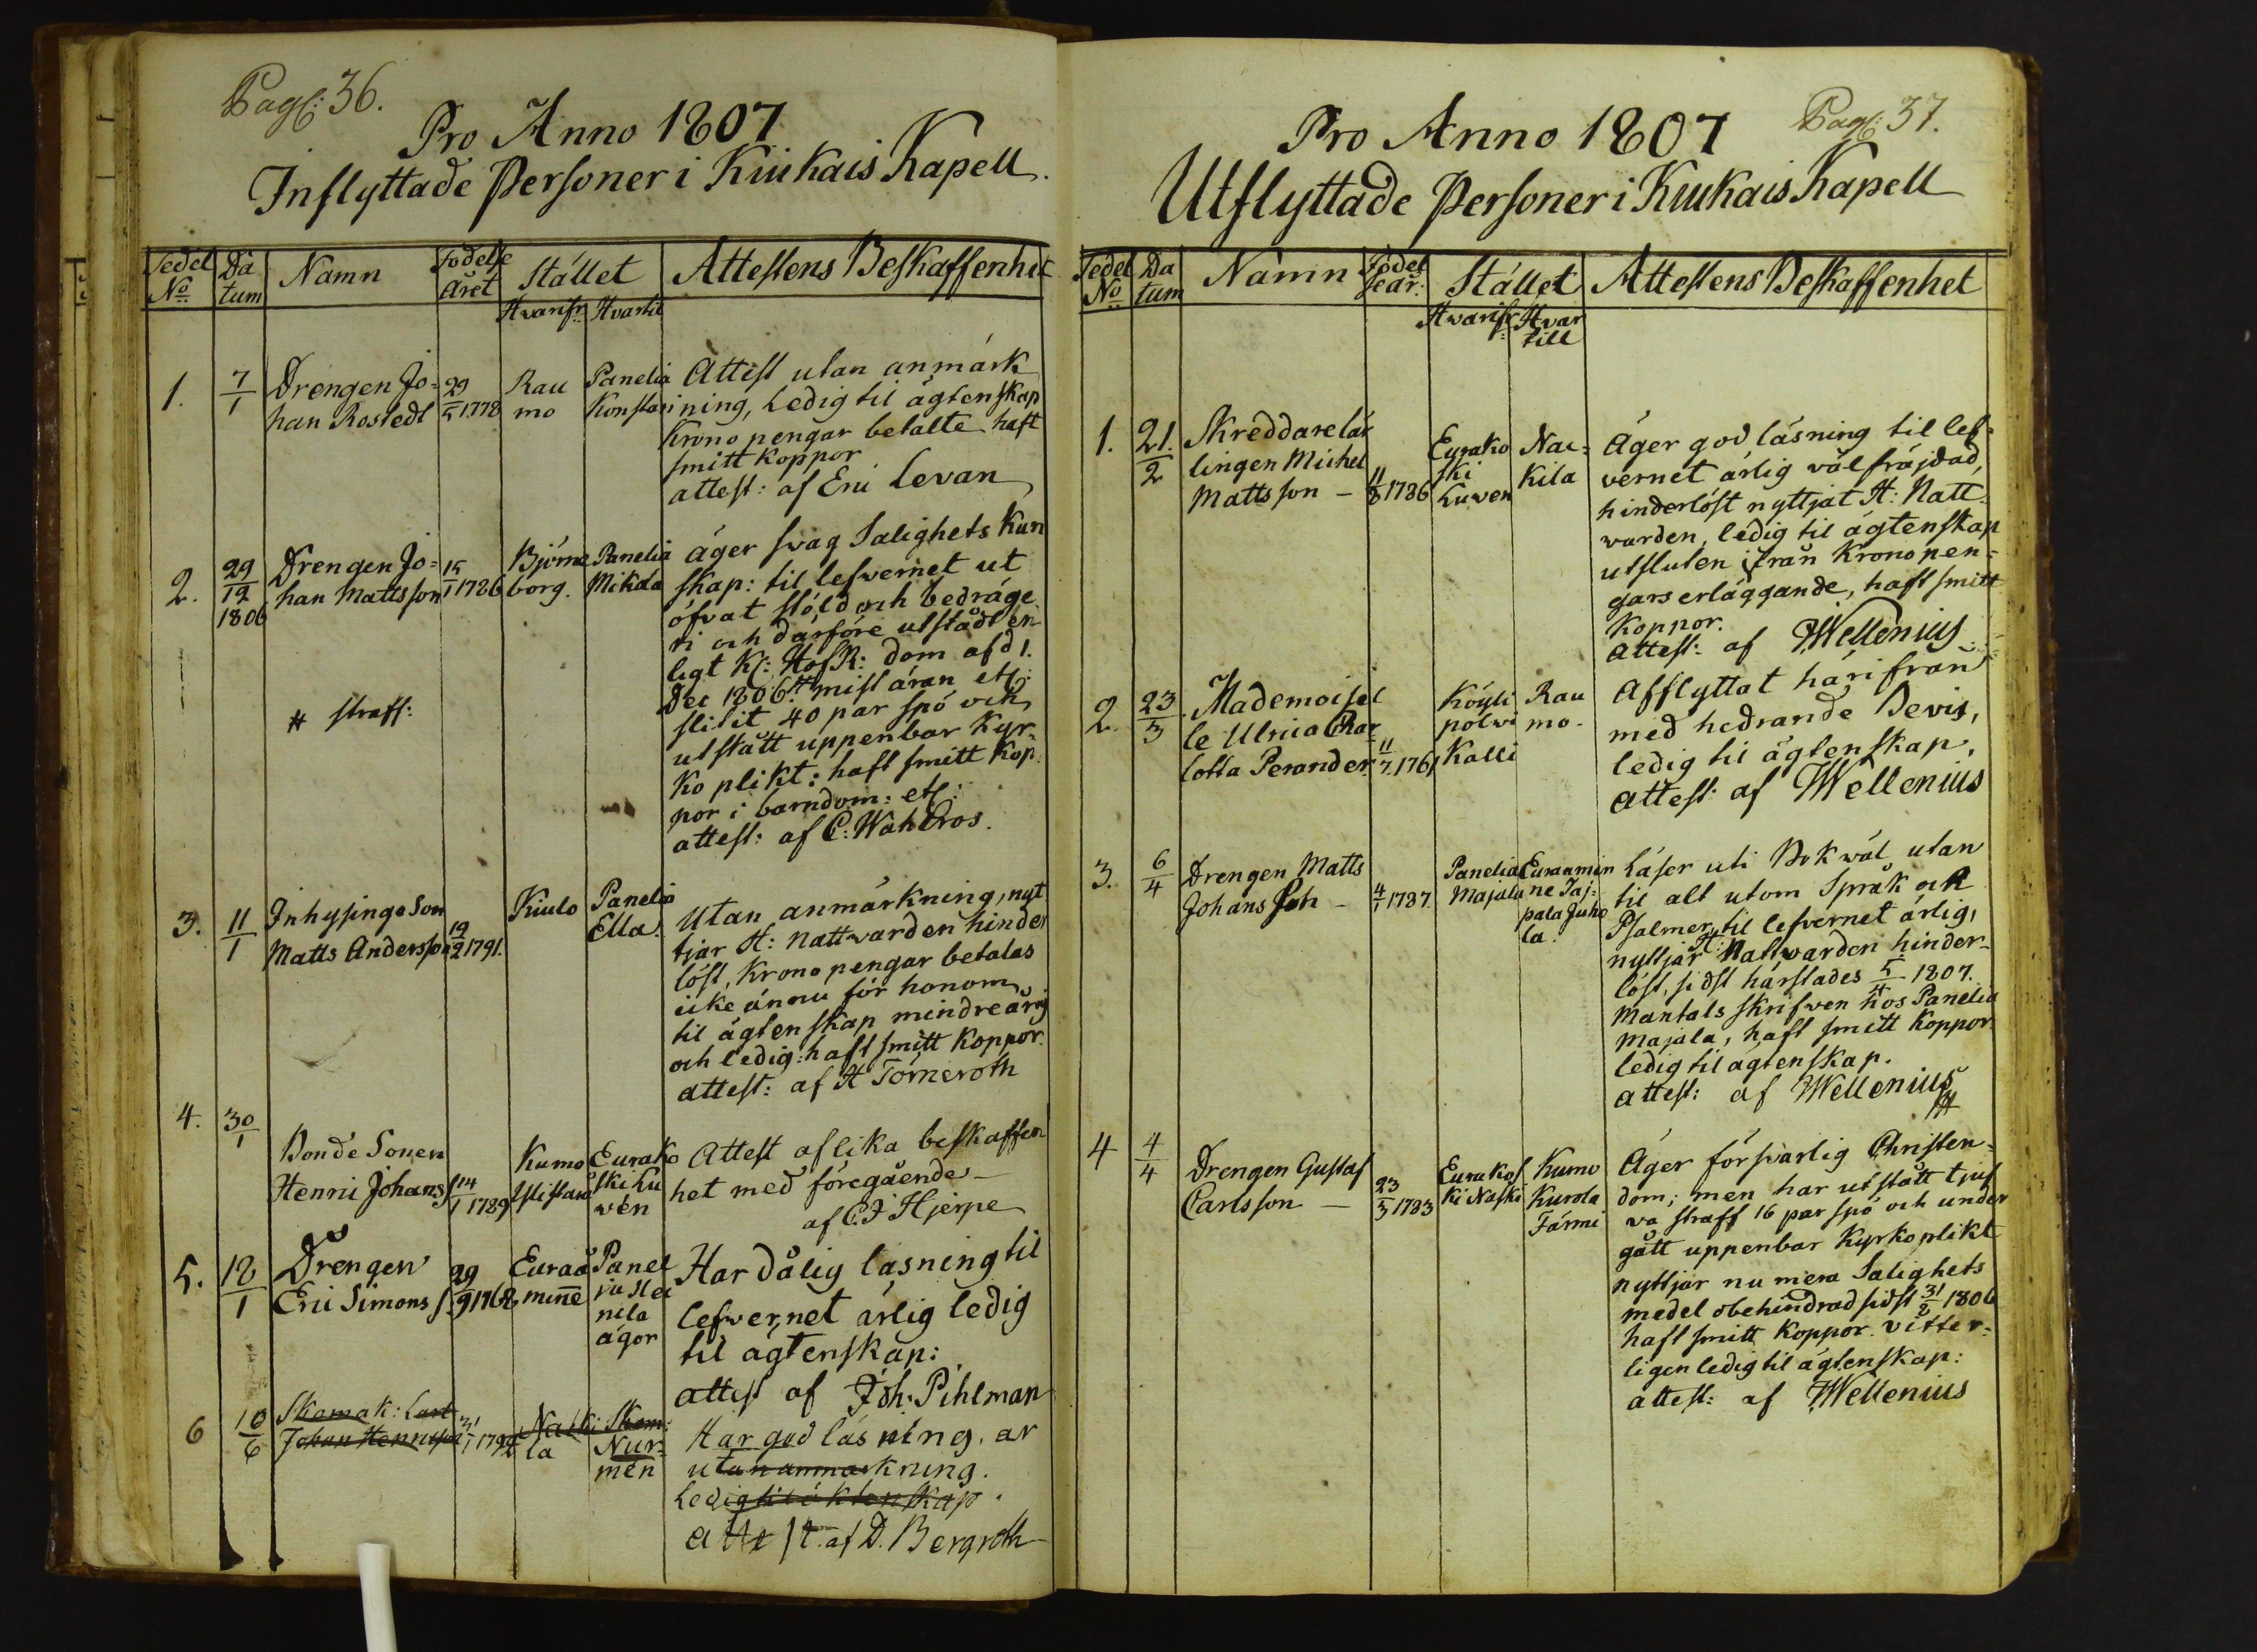 Pag: 36.
Pro Anno 1807
Inflyttade Personer i Kiukais Kapell.
Sedel No.
Da tum
Namn
Födelse Året
Stället
Attestens Beskaffenhet
Hvarifr:
Hvartil
1.
7/1
Drengen Jo=
han Rostedt
29/5 1778
Rau
mo
Panelia
Konstari
Attest utan anmärk
ning, Ledig til ägtenskap
Krono pengar betalte haft
smitt koppor
attest: af Eric Levan
2.
29/12
1806
Drengen Jo=
han Mattsson
15/1 1786
Björne
borg.
Panelia
Mikola
äger svag Salighets kun
skap: til lefvernet ut
öfvat stöld och bedräge
ri och därföre utstådt en
ligt K: HofR: dom af d 1.
Dec 1806. # mist äran etc:
slitit 40 par spö och
utstått uppenbar Kyr=
ko plikt: haft smitt kop
por i barndom: etc:
attest: af C: Wahlroos.
# straff:
3.
11/1
Inhysinge Son
Matts Andersson
19/2 1791.
Kiulo
Panelia
Ella.
Utan anmärkning, nyt
tjar H: nattwarden hinder
löst, Krono pengar betalas
icke ännu för honom,
til ägtenskap mindreårig
och ledig: haft smitt koppor.
attest: af H Törneroth
4.
30/1
Bonde Sonen
Henric Johans s
14/1 1789
Kumo
Ylistaro
Eurako
ski Lu
wén
Attest af lika beskaffen
het med föregående
af C. J Hjerpe
5.
12/1
Drengen
Eric Simons s.
29/9 1768
Euraå
minne
Panel
ja Hei
nila
ägor
Har dålig läsning til
lefwernet ärlig ledig
til ägtenskap:
attest af Joh: Pihlman
6
10/6
Skomak: Lärl
Johan Henriksson
Naki
la
Skom:
Nur=
mén
Har god läsning. ar
utan anmärkning.
Ledig til äktenskap.
attest. af D. Bergroth
Pag: 37.
Pro Anno 1807
Utflyttade Personer i Kiukais Kapell
Sedel No
Da tum
Namn
Födel se år:
Stället
Attestens Beskaffenhet
Hwarifr:
Hvar till
1.
21./2
Skreddare lär
lingen Michel
Mattsson –
11/8 1786
Eurako
ski
Luwen
Nac=
kila
Äger god läsning til lef=
vernet ärlig väl fräjdad,
hinderlöst nyttjat H: Natt
warden, ledig til ägtenskap
utsluten ifrån Kronopen=
gars erläggande, haft smitt
koppor.
Attest: af JWellenius
2.
23/3
Mademoisel
le Ulrica Char
lotta Perander
11/7 1761
Köyli
polwi
Kalli
Rau
mo.
Afflyttat härifrån
med hedrande Bevis,
ledig til ägtenskap,
attest: af JWellenius
3.
6/4
Drengen Matts
Johans Son –
4/1 1787.
Panelia
Majala
Euraamin
ne Taj=
pala Juho
la.
Läser uti Bok wäl, utan
til alt utom Språk och
Psalmer, til lefvernet ärlig,
nyttjar H: Nattwarden hinder=
löst, sidst härstädes 5/4 1807.
Mantals skrifven hos Panelia
Majala, haft smitt koppor
ledig til ägtenskap.
attest: af JWellenius
4
4/4
Drengen Gustaf
Carlsson –
23/3 1783
Eurakos
ki Naski
Kumo
Kurola
Färmi
Äger försvarlig Christen=
dom; men har utstått tjuf
va straff 16 par spö och under
gått uppenbar Kyrkoplikt
nyttjar nu mera Salighets
medel obehindrad sidst 31/2 1806
haft smitt koppor. vitter=
ligen ledig til ägtenskap:
attest: af JWellenius